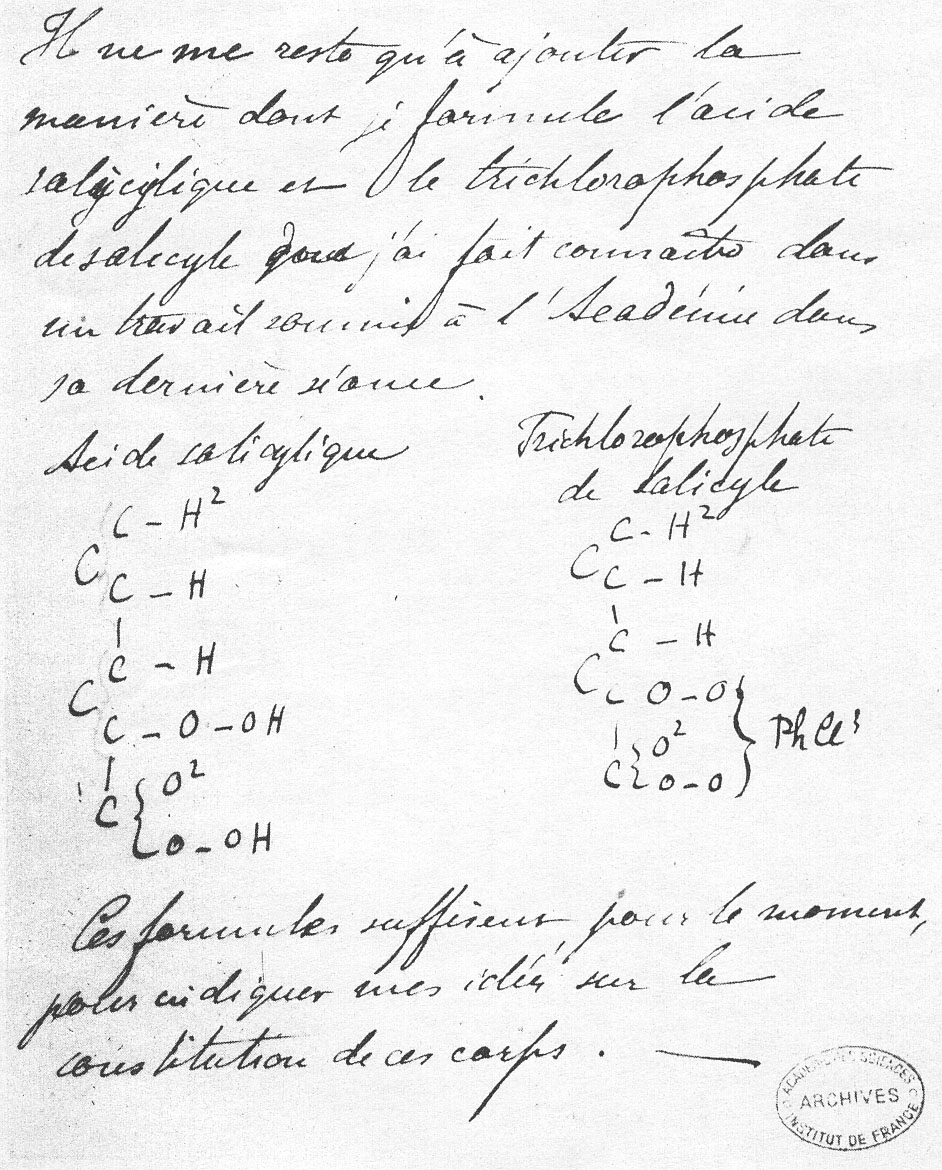 Il ne me reste qu'à ajouter la
manière dont je formule l'acide
salycilique et le trichlorophosphate
de salicyle que j'ai fait connaître dans
un travail soumis à l'Académie dans
sa dernière séance.
Acide salicylique
Trichlorophosphate
de salicyle
C - H²
C
C - H
C - H
C
C - O - OH
C { O²
O - OH
C - H²
C
C - H
C - H
C
C O - O
O²
C { O - O } PhCl³
Ces formules suffisent, pour le moment,
pour indiquer mes idées sur la
constitution de ces corps. —
ACADÉMIE DES SCIENCES
ARCHIVES
INSTITUT DE FRANCE